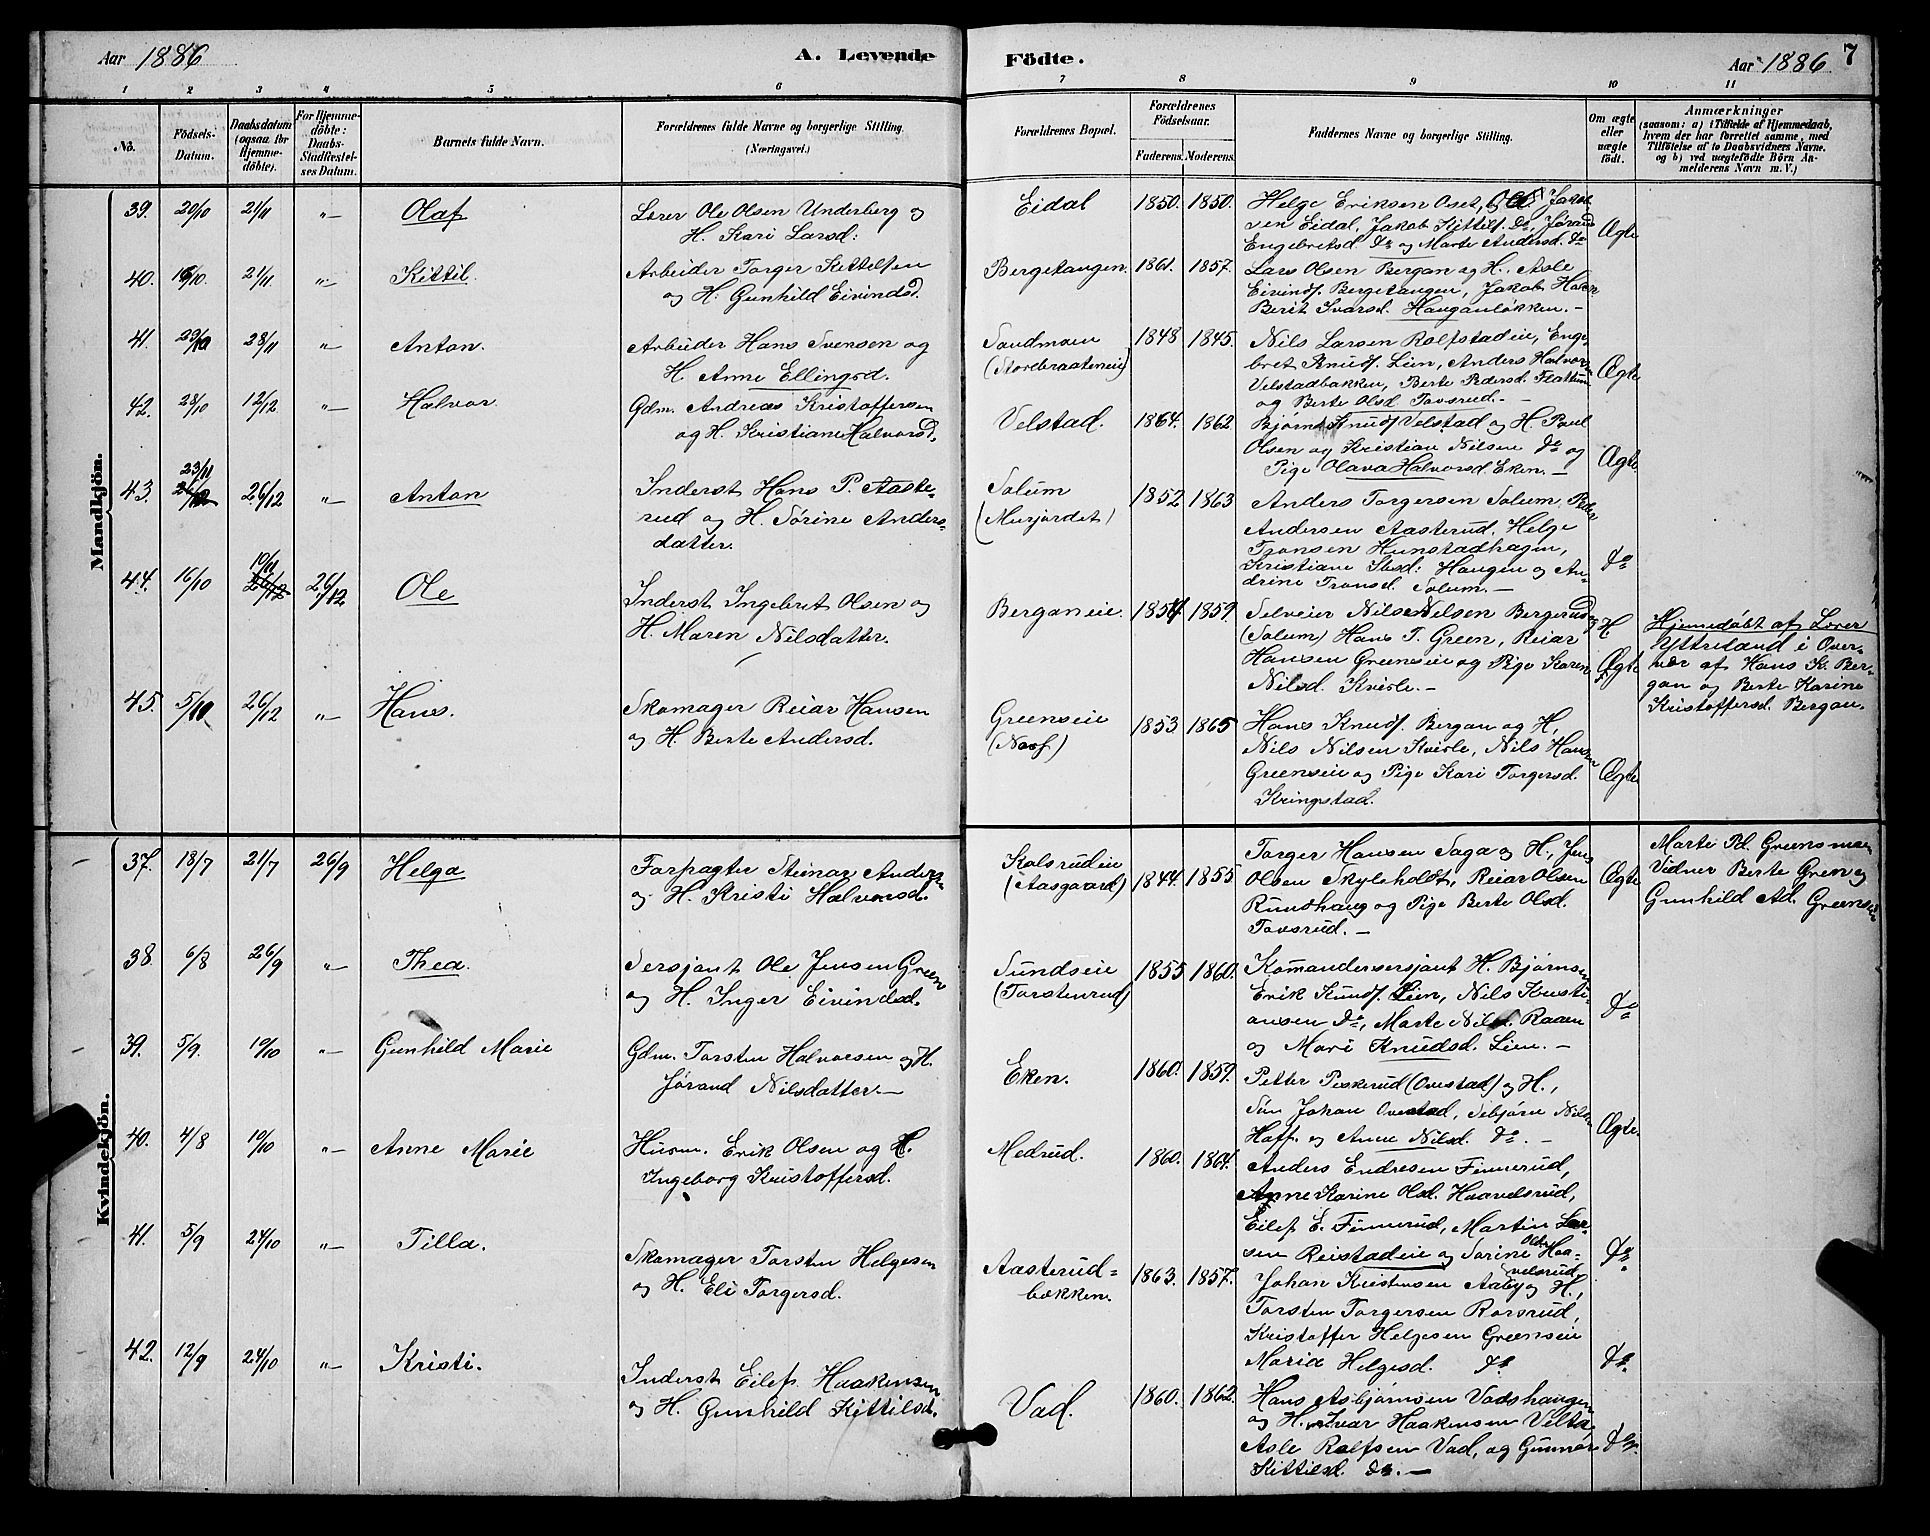 Aar 1886
A. Levende
Födte.
Aar 1886
7
1 2 3 4 5 6 7 8 9 10 11
No.
Födsels-
Datum.
Daabsdatum
(ogsaa for
Hjemme-
döbte).
For Hjemme-
döbte:
Daabs-
Stadfæstel-
ses Datum.
Barnets fulde Navn.
Forældrenes fulde Navne og borgerlige Stilling.
(Næringsvei.)
Forældrenes Bopæl.
Forældrenes
Födselsaar.
Faderens. Moderens.
Faddernes Navne og borgerlige Stilling.
Om ægte
eller
uægte
födt.
Anmærkninger
(saasom: a) i Tilfælde af Hjemmedaab,
hvem der har forrettet samme, med
Tilföielse af to Daabsvidners Navne,
og b) ved uægtefödte Börn An-
melderens Navn m. V.)
Mandkjön.
39. 20/10 21/11 "— Olaf
Lærer Ole Olsen Underberg og
H. Kari Larsd:
Eidal 1850. 1850.
Helge Eriksen Oset, Jakob
Eidal, Jakob Kittelf. Do, Jørand
Engebretsd Do og Marte Andersd. Do
Ægte
40. 16/10 21/11 "— Kittil.
Arbeider Torger Kittelsen
og H. Gunhild Eivindsd.
Bergetangen. 1861. 1857.
Lars Olsen Bergan og H., Asle
Eivindf. Bergetangen, Jakob
Berit Ivarsd. Hauganløkken.—
41. 29/10 28/11 "— Anton.
Arbeider Hans Svensen og
H. Anne Ellingsd.
Sandmoen
(Storebraateneie)
1848 1845.
Nils Larsen Rolfstadeie, Enge-
bret Knudf. Lien, Anders Halvors
Velstadbakken, Berte Pedersd. Flattum
og Berte Olsd. Tovsrud.—
Ægte
42. 28/10 12/12 "— Halvor.
Gdm. Andreas Kristoffersen
og H. Kristiane Halvorsd.
Velstad. 1864. 1862
Bjørn Knudf Velstad og H. Paul
Olsen og Kristian Nilsen Do og
Pige Olava Halvorsd. Eken.—
Ægte
43. 23/11 26/12 "— Anton
Inderst Hans P. Aaste-
rud og H. Sørine Anders-
datter.
Solum
(Murjordet)
1852 1863
Anders Torgersen Solum, Peder
Andersen Aasterud, Helge
Tronsen Hunstadhagen,
Kristiane Haugen og An-
drine Tronsd. Solum.—
Do
44. 16/10 10/11 26/12 Ole
Inderst Ingebret Olsen og
H. Maren Nilsdatter.
Berganeie. 1859.
Selveier Nils Nilsen Bergerud og H.
(Solum) Hans T. Green, Reiar
Hansen Greenseie og Pige Karen
Nilsd. Kvisle.—
Ægte
Hjemmedøbt af Lærer
Ytteland i Over-
vær af Hans K. Ber-
gan og Berte Karine
Kristoffersd. Bergan.
45. 5/10 26/12 "— Hans.
Skomager Reiar Hansen
og H. Berte Andersd.
Greenseie
1853. 1865
Hans Knudf. Bergan og H,
Nils Nilsen Kvisle, Nils Hansen
Greenseie og Pige Kari Torgersd.
Kringstad.
Ægte
Kvindekjön.
37. 18/7 21/7 26/9 Helga
Forpagter Steinar Anders
og H. Kristi Halvorsd.
Kolsrudeie
(Aasgaard)
1844. 1855
Torger Hansen Saga og H., Jens
Olsen Skyleholdt, Reiar Olsen
Rundhaug og Pige Berte Olsd.
Tovsrud.—
Ægte
Marte Pd. Greensmoen
Vidner Berte Green og
Gunhild Ad. Greensei
38. 6/8 26/9 "— Thea.
Sersjant Ole Jensen Green
og H. Inger Eivindsd.
Sundseie
(Torstenrud)
1855 1860.
Komandersersjant H. Bjørnsen
Erik Knudf. Lien, Nils Kristi-
ansen Do, Marte Nilsd. Raaen
og Mari Knudsd. Lien.—
Do
39. 5/9. 10/10 "— Gunhild Marie
Gdm. Torsten Halvorsen og H.
Jørand Nilsdatter.—
Eken. 1860. 1859.
Petter Peskerud (Ovestad) og H.,
Søn Johan Ovestad, Sebjørn Nilsen
Hoff. og Anne Nilsd. Do.—
Ægte.
40. 4/8 10/10 "— Anne Marie
Husm. Erik Olsen og H.
Ingeborg Kristoffersd.
Medrud. 1860. 1864.
Anders Endresen Finnerud,
Anne Karine Olsd. Haavelsrud,
Eilef E. Finnerud, Martin Lar-
sen Reistadeie og Sorine Olsd. Haa-
velsrud.
Do
41. 5/9 24/10 "— Tilla.
Skomager Torsten Helgesen
og H. Eli Torgersd.
Aasterud=
bakken.
1863. 1857.
Johan Kristensen Aaby og H.,
Torsten Torgersen Rorsrud,
Kristoffer Helgesen Greenseie
Maria Helgesd. Do
Do.
42. 12/9 24/10 "— Kristi.
Inderst Eilef Haakensen
og H. Gunhild Kittilsd.
Vad. 1860. 1862.
Hans Asbjørnsen Vadshaugen
og H. Ivar Haakensen Velta
Asle Rolfsen Vad, og Gunnør
Kittilsd. Do.—
Do.